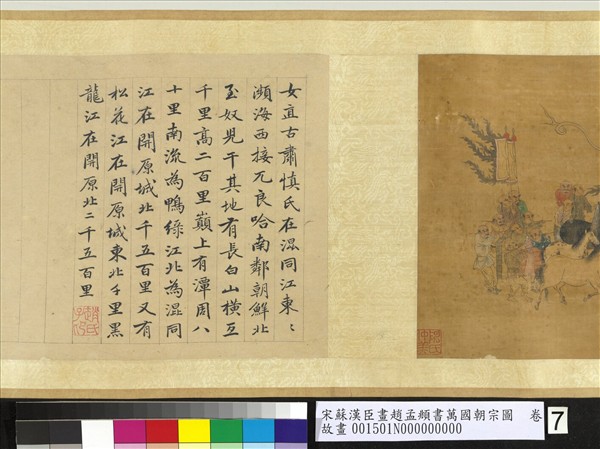 女直古肅慎氏在混同江東〻
瀕海西接兀良哈南鄰朝鮮北
至奴兒干其地有長白山橫亙
千里高二百里巔上有潭周八
十里南流為鴨綠江北為混同
江在開原城北千五百里又有
松花江在開原城東北千里黑
龍江在開原北二千五百里
宋蘇漢臣畫趙孟頫書萬國朝宗圖 卷
故畫 001501N000000000
7